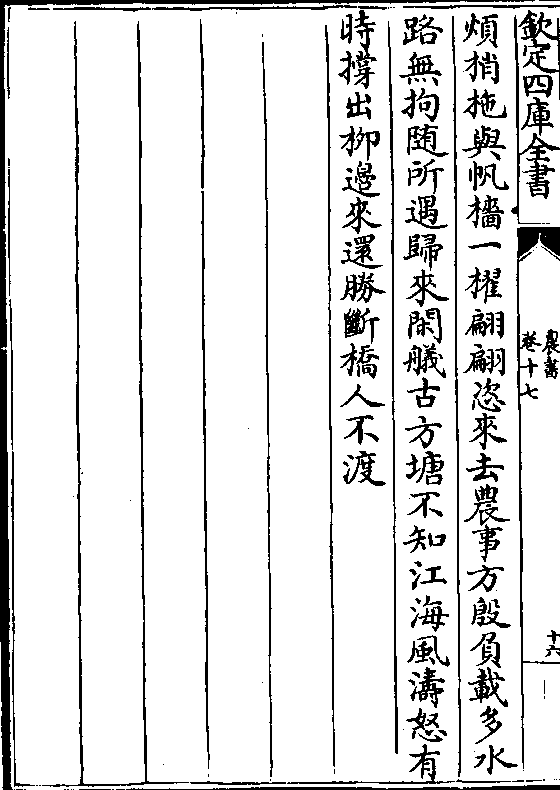 欽定四庫全書
農書
卷十七
十六
煩捎拖與帆檣一櫂翩翩恣來去農事方殷負載多水
路無拘随所遇歸來閑艤古方塘不知江海風濤怒有
時撐出柳邉來還勝斷橋人不渡